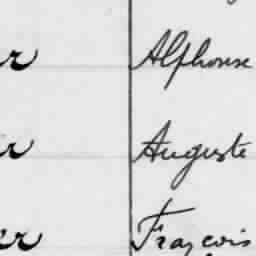 r Alphonse
r Auguste
er François